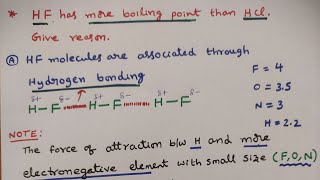 * HF has more boiling point than HCl.
Give reason.
(A) HF molecules are associated through
Hydrogen bonding
F = 4
δ+ δ- δ+ δ- δ+ δ-
O = 3.5
H–F┅┅H–F┅┅H–F
N = 3
H = 2.2
NOTE:
The force of attraction b/w H and more
electronegative element with small size (F,O,N)